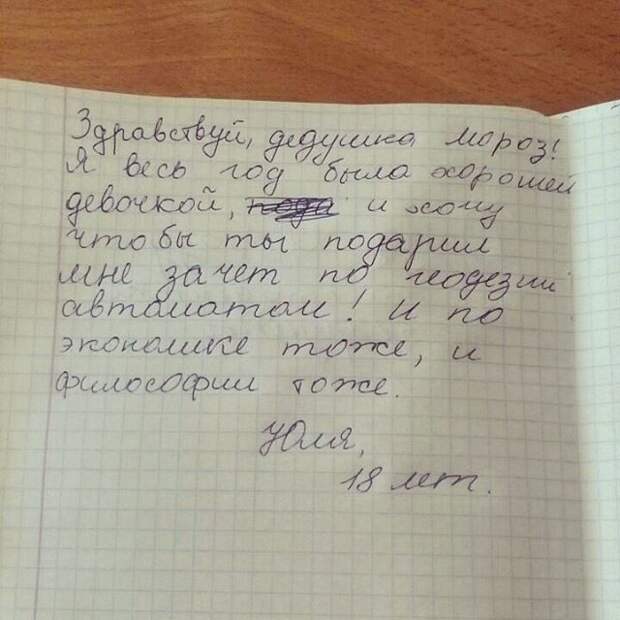 Здравствуй, дедушка мороз!
Я весь год была хорошей
девочкой, и хочу
чтобы ты подарил
мне зачет по геодезии
автоматом! И по
экономике тоже, и
философии тоже.
Юля,
18 лет.